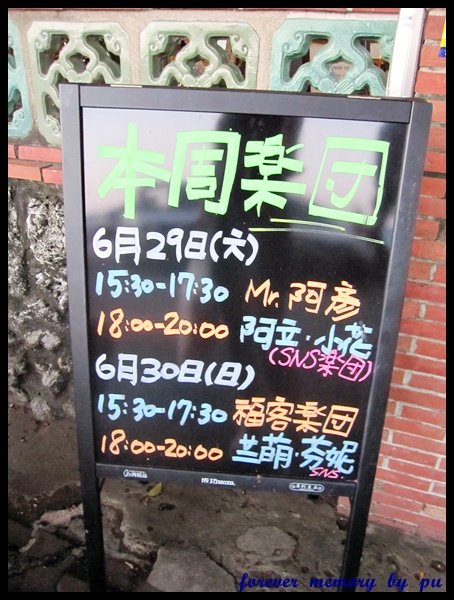 本周楽団
6月29日(六)
15:30-17:30 Mr.阿彥
18:00-20:00 阿立·小花
(SNS楽団)
6月30日(日)
15:30-17:30 福客楽団
18:00-20:00 兰萌·芬妮
SNS.
forever memory by pu